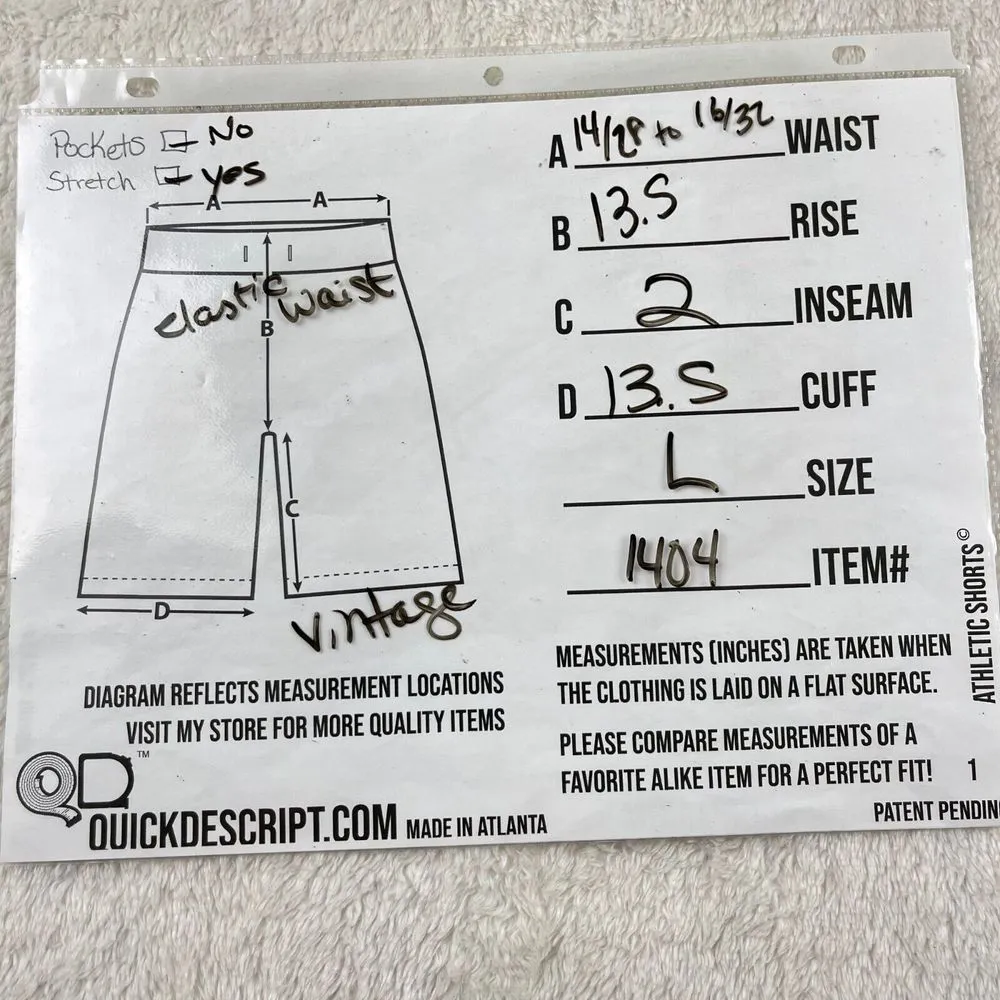 Pockets - No
Stretch - yes
A A
elastic waist
B
C
D
vintage
DIAGRAM REFLECTS MEASUREMENT LOCATIONS
VISIT MY STORE FOR MORE QUALITY ITEMS
QD™
QUICKDESCRIPT.COM MADE IN ATLANTA
A 14/28 to 16/32 WAIST
B 13.5 RISE
C 2 INSEAM
D 13.5 CUFF
L SIZE
1404 ITEM#
MEASUREMENTS (INCHES) ARE TAKEN WHEN
THE CLOTHING IS LAID ON A FLAT SURFACE.
PLEASE COMPARE MEASUREMENTS OF A
FAVORITE ALIKE ITEM FOR A PERFECT FIT! 1
PATENT PENDIN
ATHLETIC SHORTS©